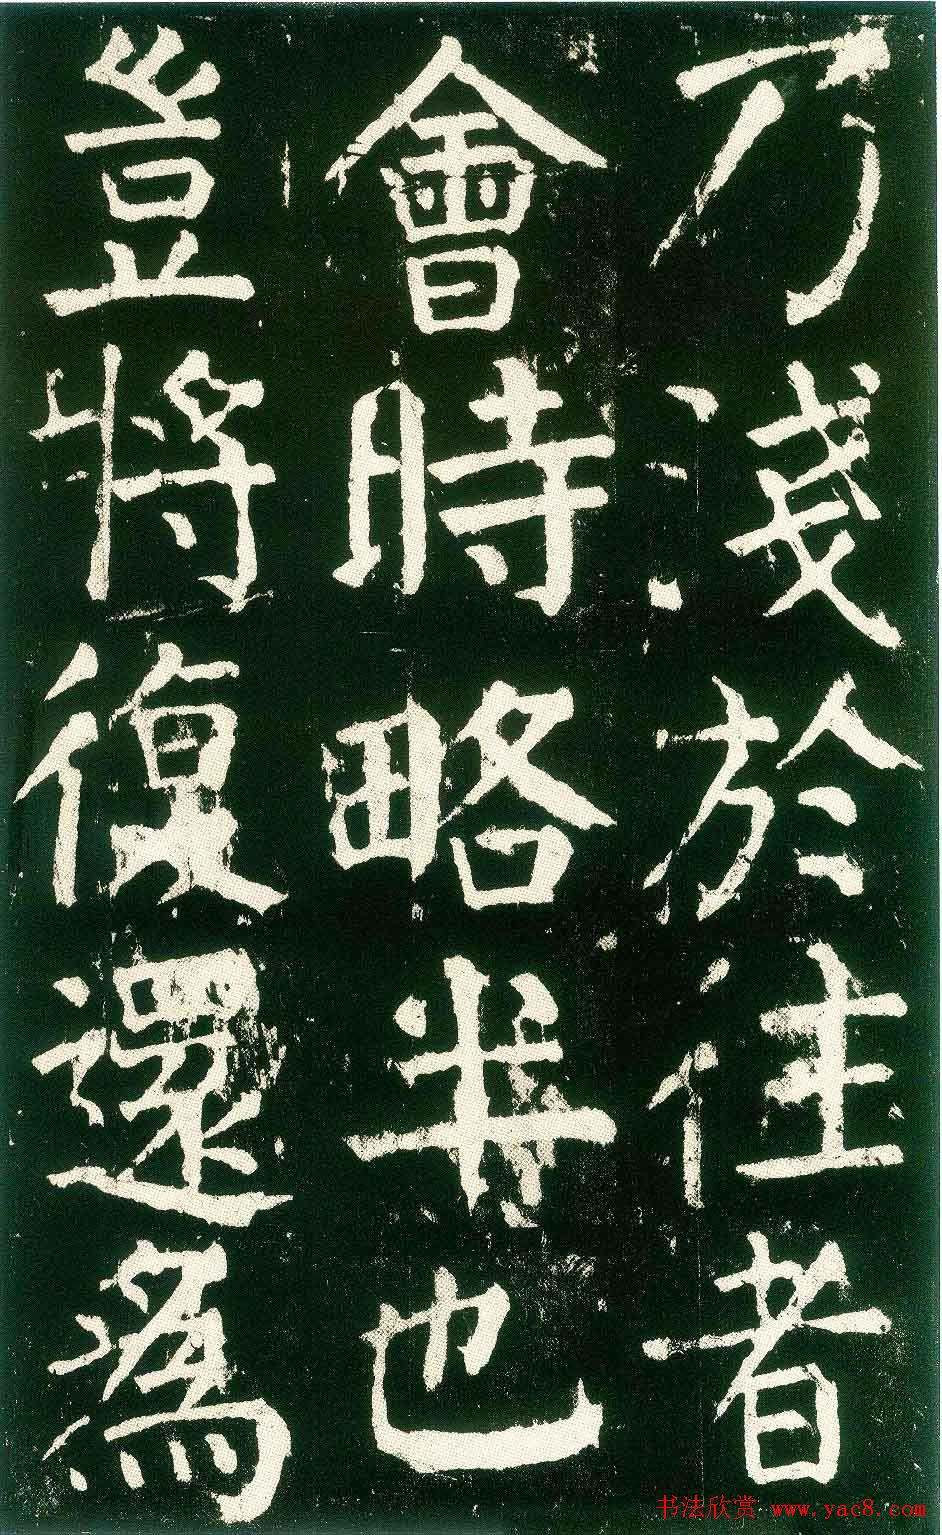 乃淺於往者
會時略半也
豈將復還為
书法欣赏 www.yac8.com